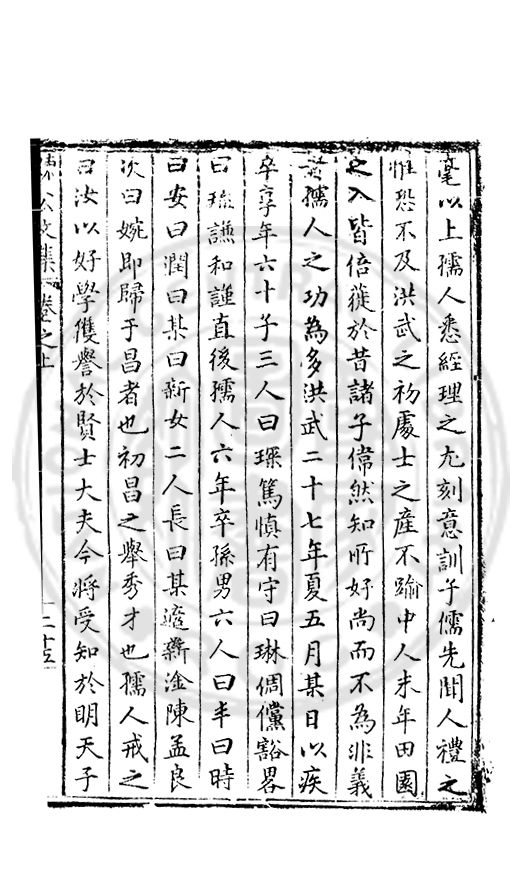 毫以上孺人悉經理之尤刻意訓子儒先聞人禮之
惟恐不及洪武之初處士之產不踰中人末年田園
之入皆倍蓰於昔諸子偉然知所好尚而不為非義
孺人之功為多洪武二十七年夏五月某日以疾
卒享年六十子三人曰琛篤慎有守曰琳倜儻豁畧
曰珫謙和謹直後孺人六年卒孫男六人曰丰曰時
曰安曰潤曰某曰新女二人長曰某適新淦陳孟良
次曰婉即歸于昌者也初昌之舉秀才也孺人戒之
曰汝以好學隻譽於賢士大夫今將受知於明天子
公文集 卷之上 二十五